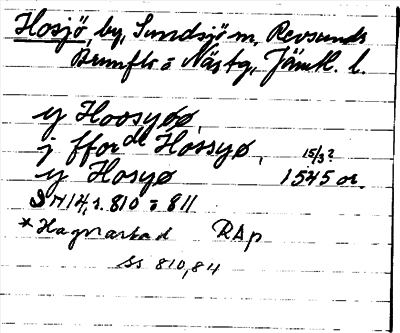 Hosjö, by, Sundsjö sn, Revsunds
Brunflo o Näs tg, Jämtl. l.
y Hoosyøø,
j fforde Hossyø, 15/3 ?
y Hosyø 1545 or.
DN 14, s. 810 o 811
* Hagvarbad RAp
ss 810, 84